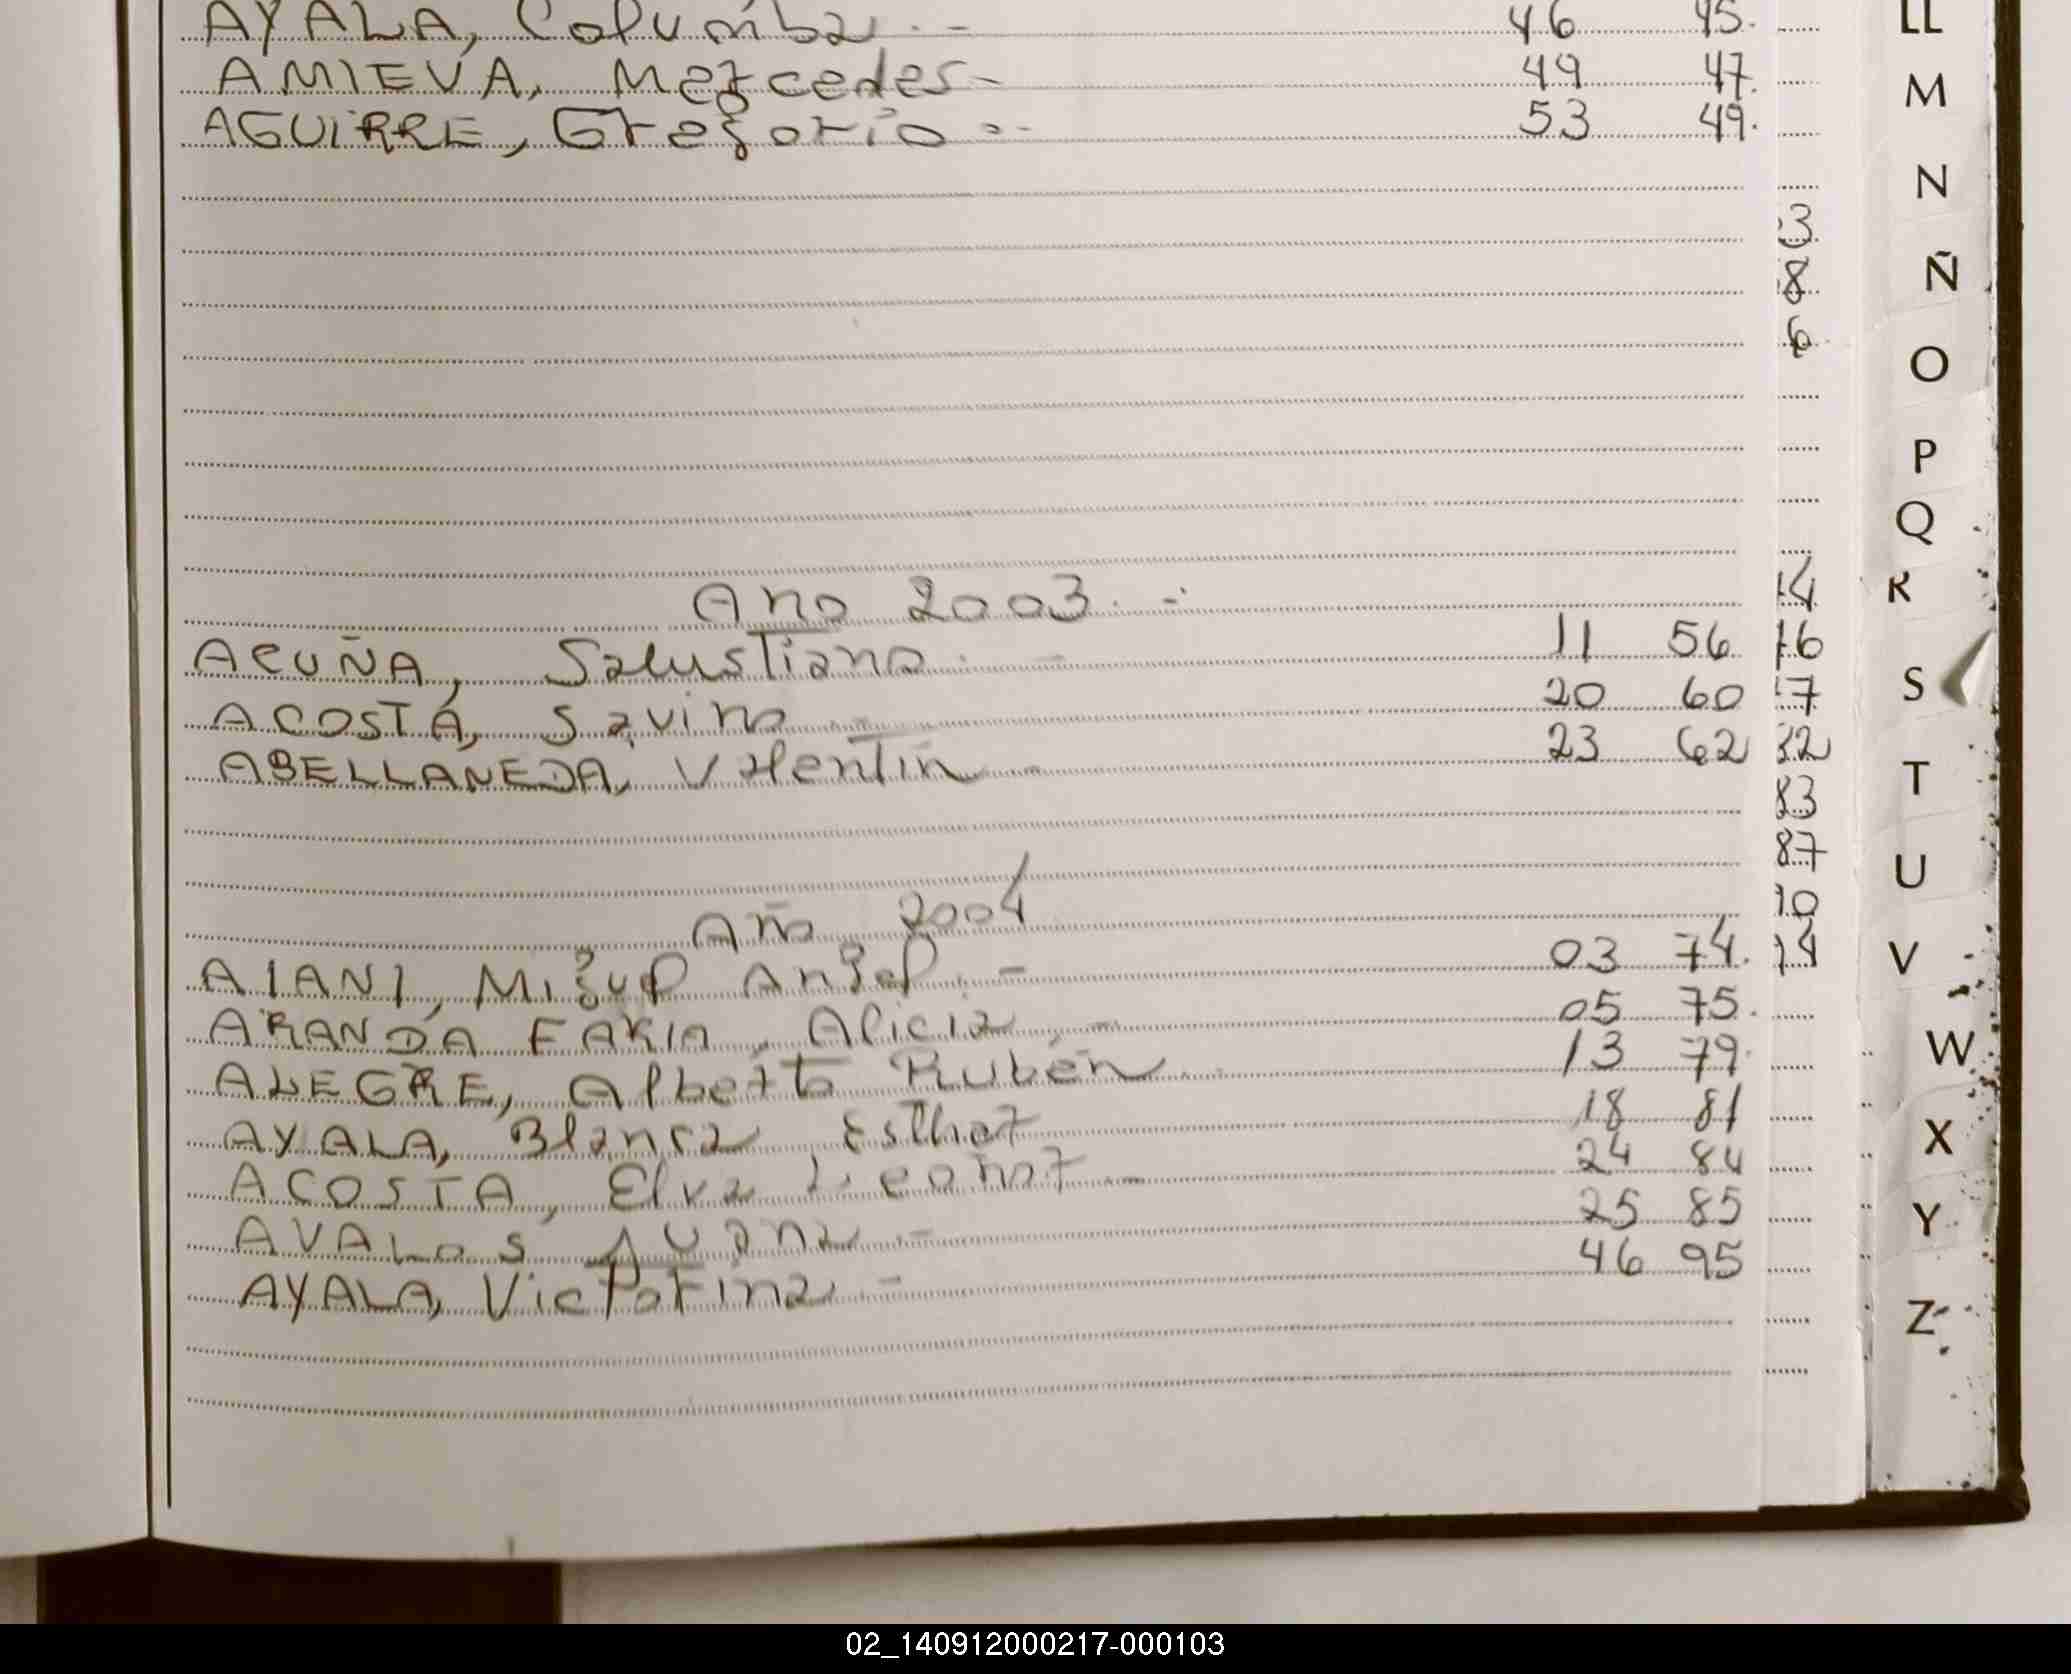 AYALA, Columba.- 46 45.
AMIEVA, Mercedes- 49 47.
AGUIRRE, Gregorio.- 53 49.
3
8
6
Año 2003.-
14
ACUÑA, Salustiano.- 11 56 16
ACOSTA, Savino.- 20 60 17
ABELLANEDA, Valentín.- 23 62 32
83
87
Año 2004
10
AIANI, Miguel Angel.- 03 74. 14
ARANDA FARIA, Alicia.- 05 75.
ALEGRE, Alberto Rubén.. 13 79.
AYALA, Blanca Esther 18 81
ACOSTA, Elva Leonor.- 24 84
AVALOS, Juana.- 25 85
AYALA, Victorina.- 46 95
LL
M
N
Ñ
O
P
Q
R
S
T
U
V
W
X
Y
Z
02_140912000217-000103